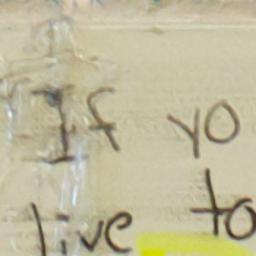 If yo
live to